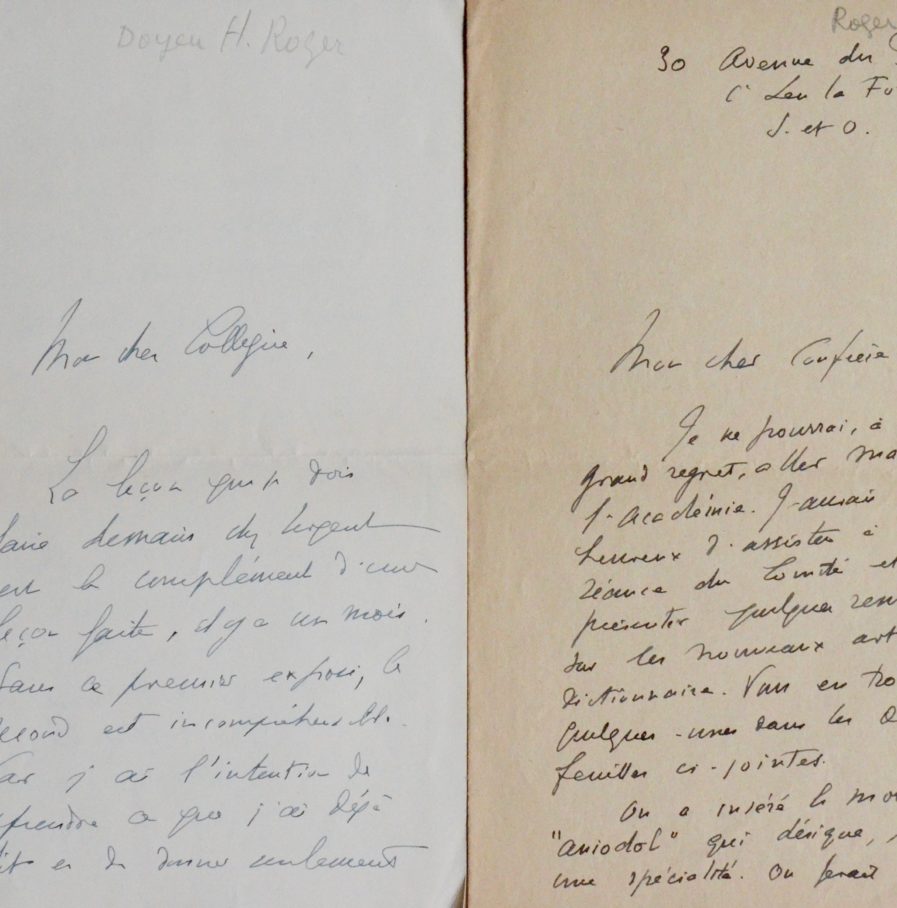 Doyen H. Roger
Mon cher Collègue,
La leçon que je dois
faire demain chez Sergent
est le complément d'une
leçon faite, il y a un mois.
Sans ce premier exposé, le
second est incompréhensible.
Car j'ai l'intention de
reprendre ce que j'ai déjà
dit et de donner seulement
Roger
30 Avenue du
St Leu la Fo
S. et O.
Mon cher Confrère
Je ne pourrai, à
grand regret, aller ma
l'Académie. J'aurais
heureux d'assister à
séance du Comité et
présenter quelques rem
sur les nouveaux art
Dictionnaire. Vous en tro
quelques-unes dans les
feuilles ci-jointes.
On a inséré le mo
"aniodol" qui désigne,
une spécialité. On ferait